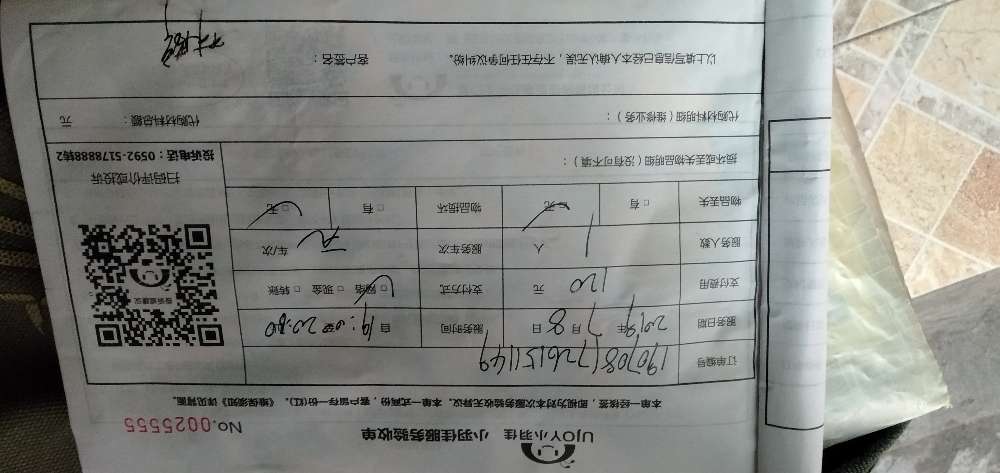 UJOY小羽佳 小羽佳服务验收单
No.0025555
本单一经核签，即视为对本次服务验收无异议。本单一式两份，客户留存一份(红)。《维保须知》详见背面。
订单编号 1907081726151149
服务日期 2019年7月8日 服务时间 自19:00至20:00
支付费用 120 元 支付方式 □网络 □现金 □转账
服务人数 1 人 服务车次 车/次
物品丢失 □有 □无 物品损坏 □有 □无
损坏或丢失物品明细（没有可不填）：
扫码评价或投诉
投诉电话：0592-5178888转2
代购材料明细（维修业务）： 代购材料总额： 元
以上填写信息已经本人确认无误，不存在任何争议纠纷。 客户签名：